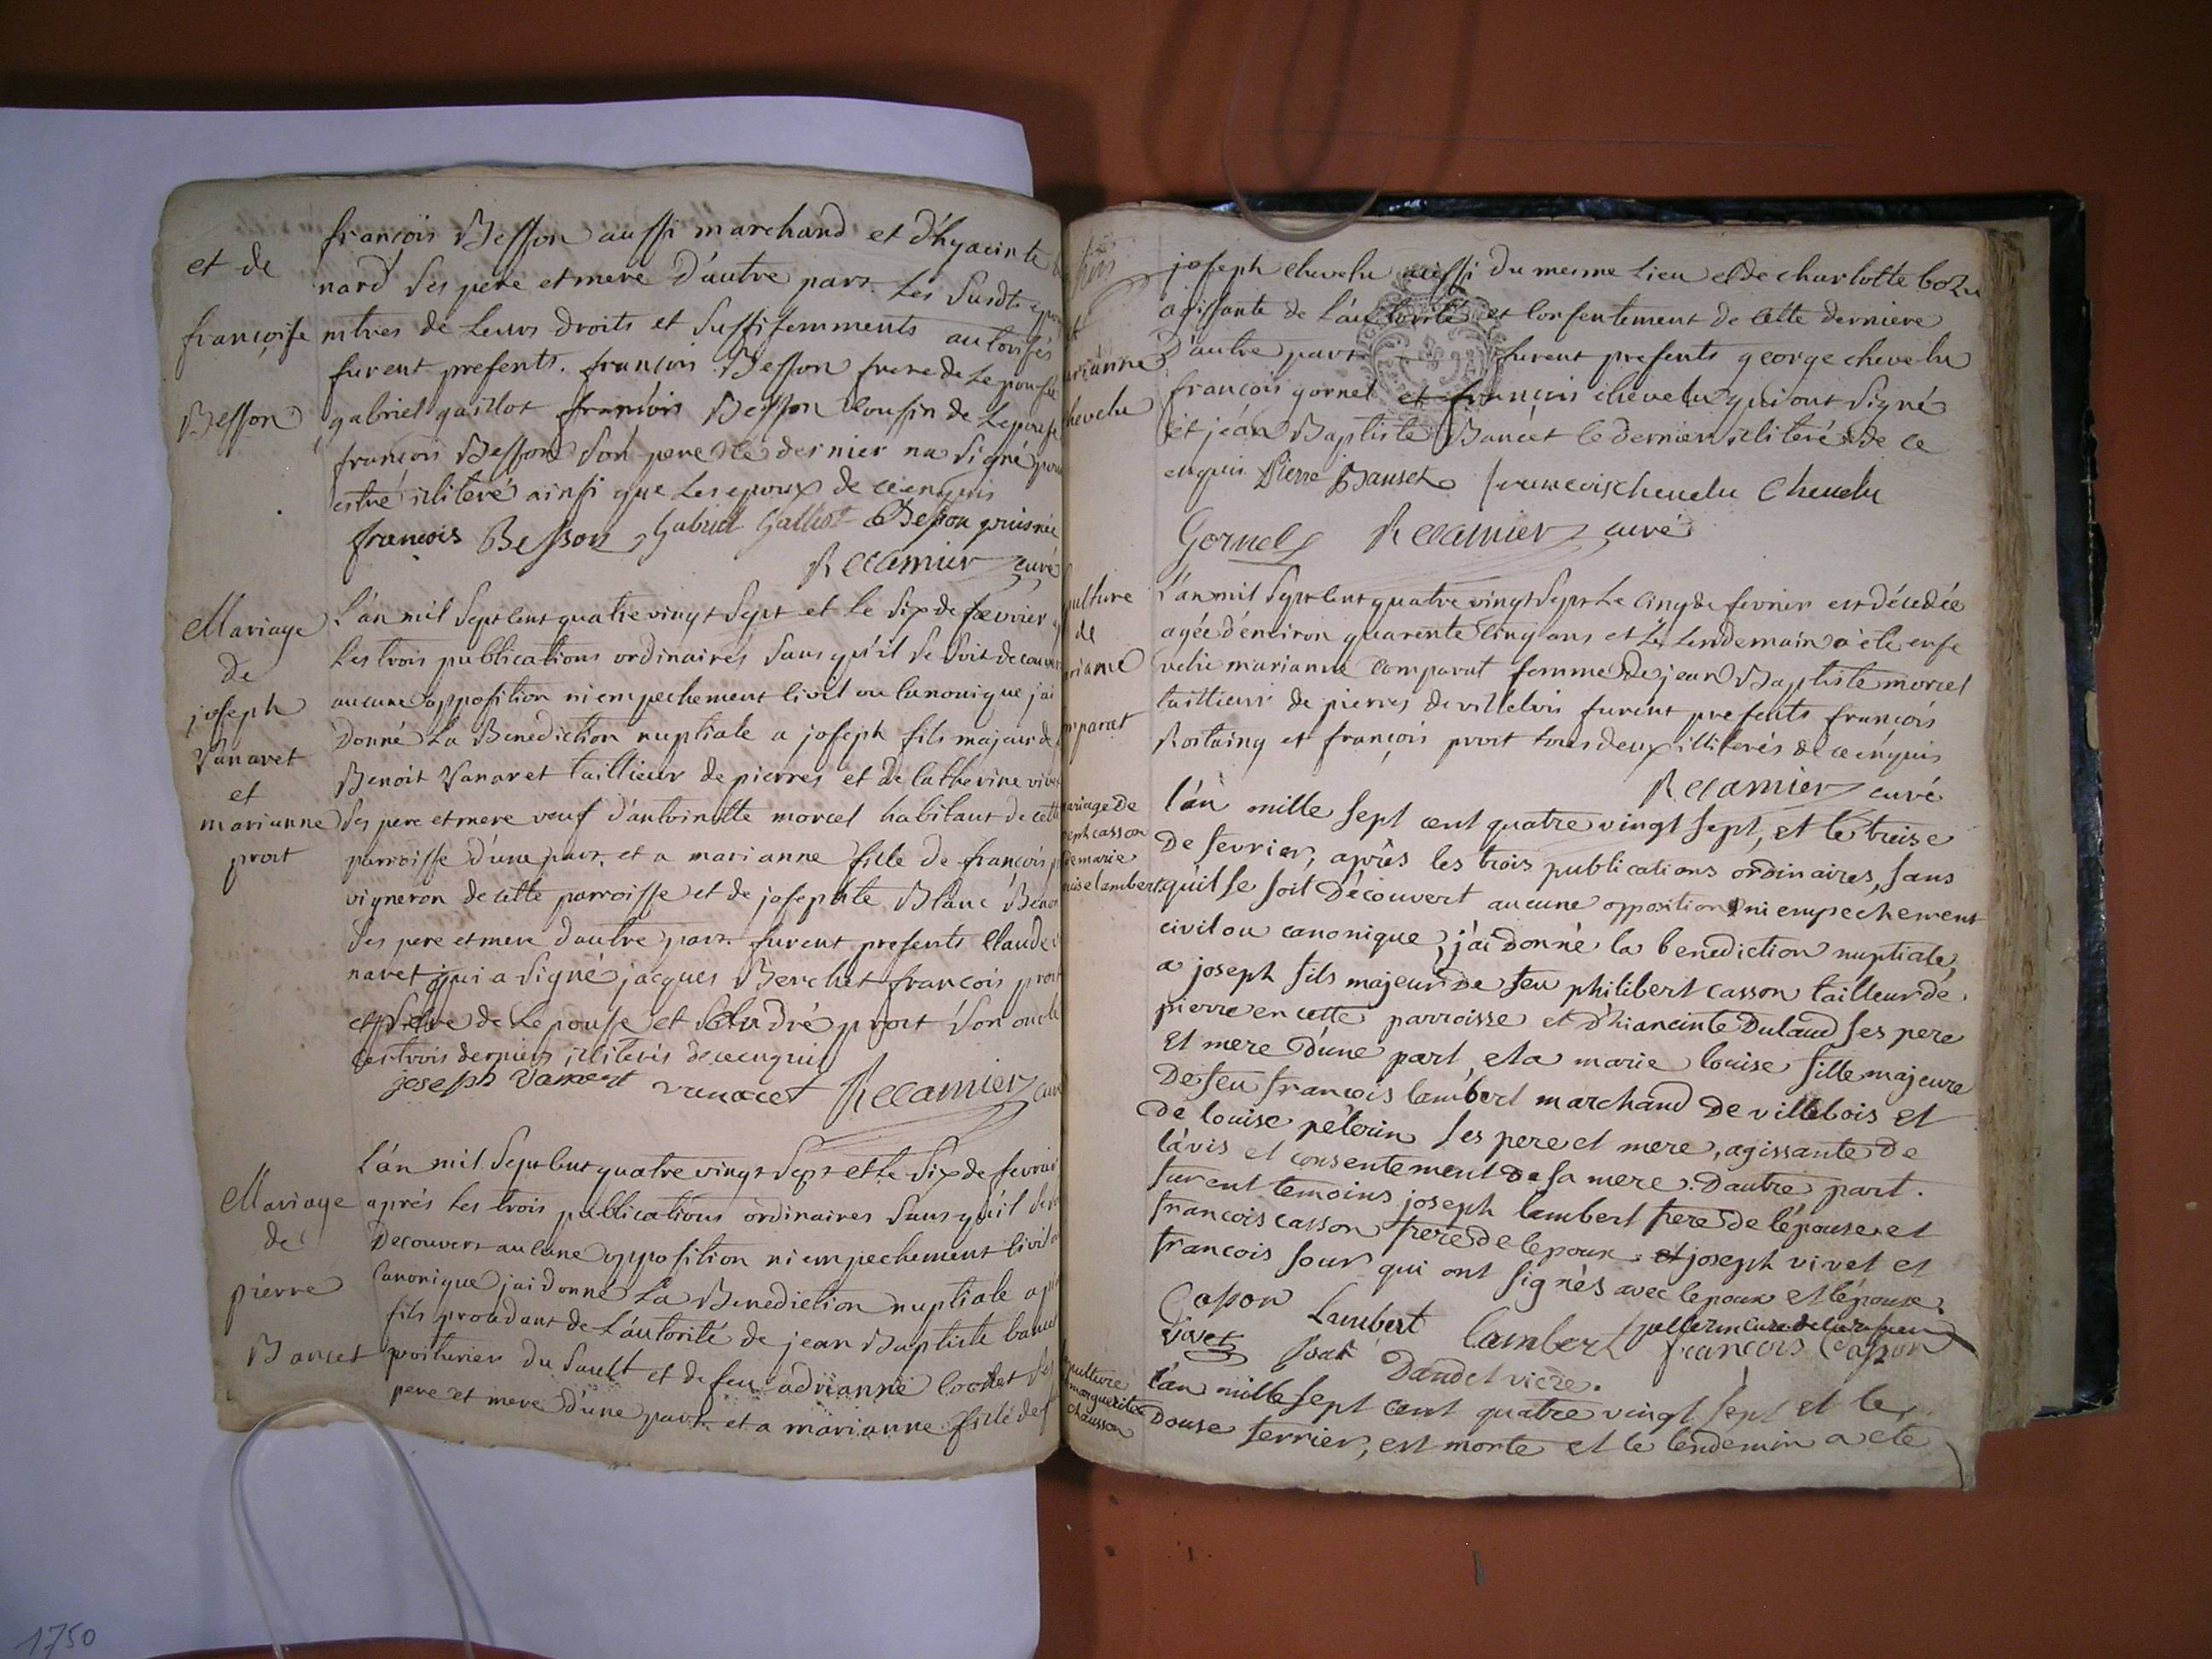 et de
françoise
Besson
françois Besson aussi marchand et d'hyacinte
nard ses pere et mere d'autre part. Les susdts
mtres de Leurs droits et suffisemments autorisés
furent presents. françois Besson frere de Lepouse
gabriel gaillot françois Besson Cousin de Lepouse
françois Besson son pere Ce dernier na signé pour
estre illiteré ainsi que Les epoux de ce enquis
françois Besson Gabriel Galliot Besson puisnée
Recamier curé
Mariage
de
joseph
Vanaret
et
marianne
prost
L'an mil Sept Cent quatre vingt Sept et le Six de faevrier
Les trois publications ordinaires Sans qu'il Se Soit decouvert
aucune opposition ni empechement Civil ou Canonique j'ai
Donné La Benediction nuptiale a joseph fils majeur de
Benoit Vanaret taillieur de pierres et de Catherine
Ses pere et mere veuf d'antoinette morcel habitant de cette
parroisse d'une part. et a marianne fille de françois
vigneron de cette parroisse et de josephte Blanc
Ses pere et mere d'autre part. furent presents Claude
naret qui a signé jacques Berchet françois prost
pere de Le pouse et André prost Son oncle
Ces trois derniers illiterés de ce enquis
joseph Vanaret vanaret Recamier curé
Mariage
de
pierre
Bancet
L'an mil Sept Cent quatre vingt Sept et Le Six de fevrier
aprés Les trois publications ordinaires Sans qu'il Se
Decouvert aucune opposition ni empechement Civil
Canonique j'ai donné La Benediction nuptiale a
fils procedant de L'autorité de jean Baptiste
du Sault et de feu adrianne
pere et mere d'une part. et a marianne fille de
marianne
chevelu
joseph chevelu aussi du mesme Lieu et de charlotte
agissante de L'authorité et Consentement de Cette derniere
D'autre part furent presents george chevelu
françois gornel et françois chevelu qui ont Signé
et jean Baptiste Bancet le dernier illiteré de ce
enquis Pierre Banset francois chevelu Chevelu
Gornel Recamier curé
pulture
de
rianne
mparat
L'an mil Sept Cent quatre vingt Sept Le Cinq de fevrier est décedée
agée d'environ quarente Cinq ans et Le Lendemain a été ense
velie marianne Comparat femme de jean Baptiste morcel
taillieur de pierres de villebois furent presents françois
Rostaing et françois prost tous deux illiterés de ce enquis
Recamier curé
mariage de
joseph casson
et de marie
louise lambert
l'an mille sept cent quatre vingt sept, et le treise
De fevrier, après les trois publications ordinaires, sans
qu'il se soit Découvert aucune opposition ni empechement
civil ou canonique, j'ai Donné la benediction nuptiale,
a joseph fils majeur De feu philibert casson tailleur de
pierre en cette parroisse et d'hiancinte Dulaud ses pere
Et mere D'une part, et a marie louise fille majeure
De feu francois lambert marchand De villebois et
de louise pélerin ses pere et mere, agissante De
l'avis et consentement De sa mere. D'autre part.
furent temoins joseph lambert frere de l'épouse et
francois casson frere de lepoux et joseph vivet et
francois sour qui ont signés avec lepoux et lépouse.
Casson Lambert Lambert
Vivet francois Casson
Dandel vicre.
pulture
marguerite
chausson
l'an mille sept cent quatre vingt sept et le
Douse ferrier, est morte et le lendemin a ete
1750